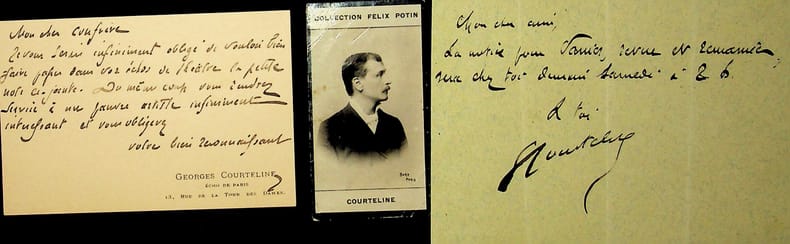 Mon cher confrère
Je vous serai infiniment obligé de vouloir bien
faire passer dans vos échos de théâtre la petite
note ci-jointe. Du même coup vous rendrez
service à une pauvre artiste infiniment
intéressant et vous obligerez
votre bien reconnaissant
GEORGES COURTELINE
ÉCHO DE PARIS
13, RUE DE LA TOUR DES DAMES.
COLLECTION FELIX POTIN
COURTELINE
Mon cher ami,
La notice pour revue et remaniée
sera chez toi demain samedi à 2 h.
A toi
GCourteline